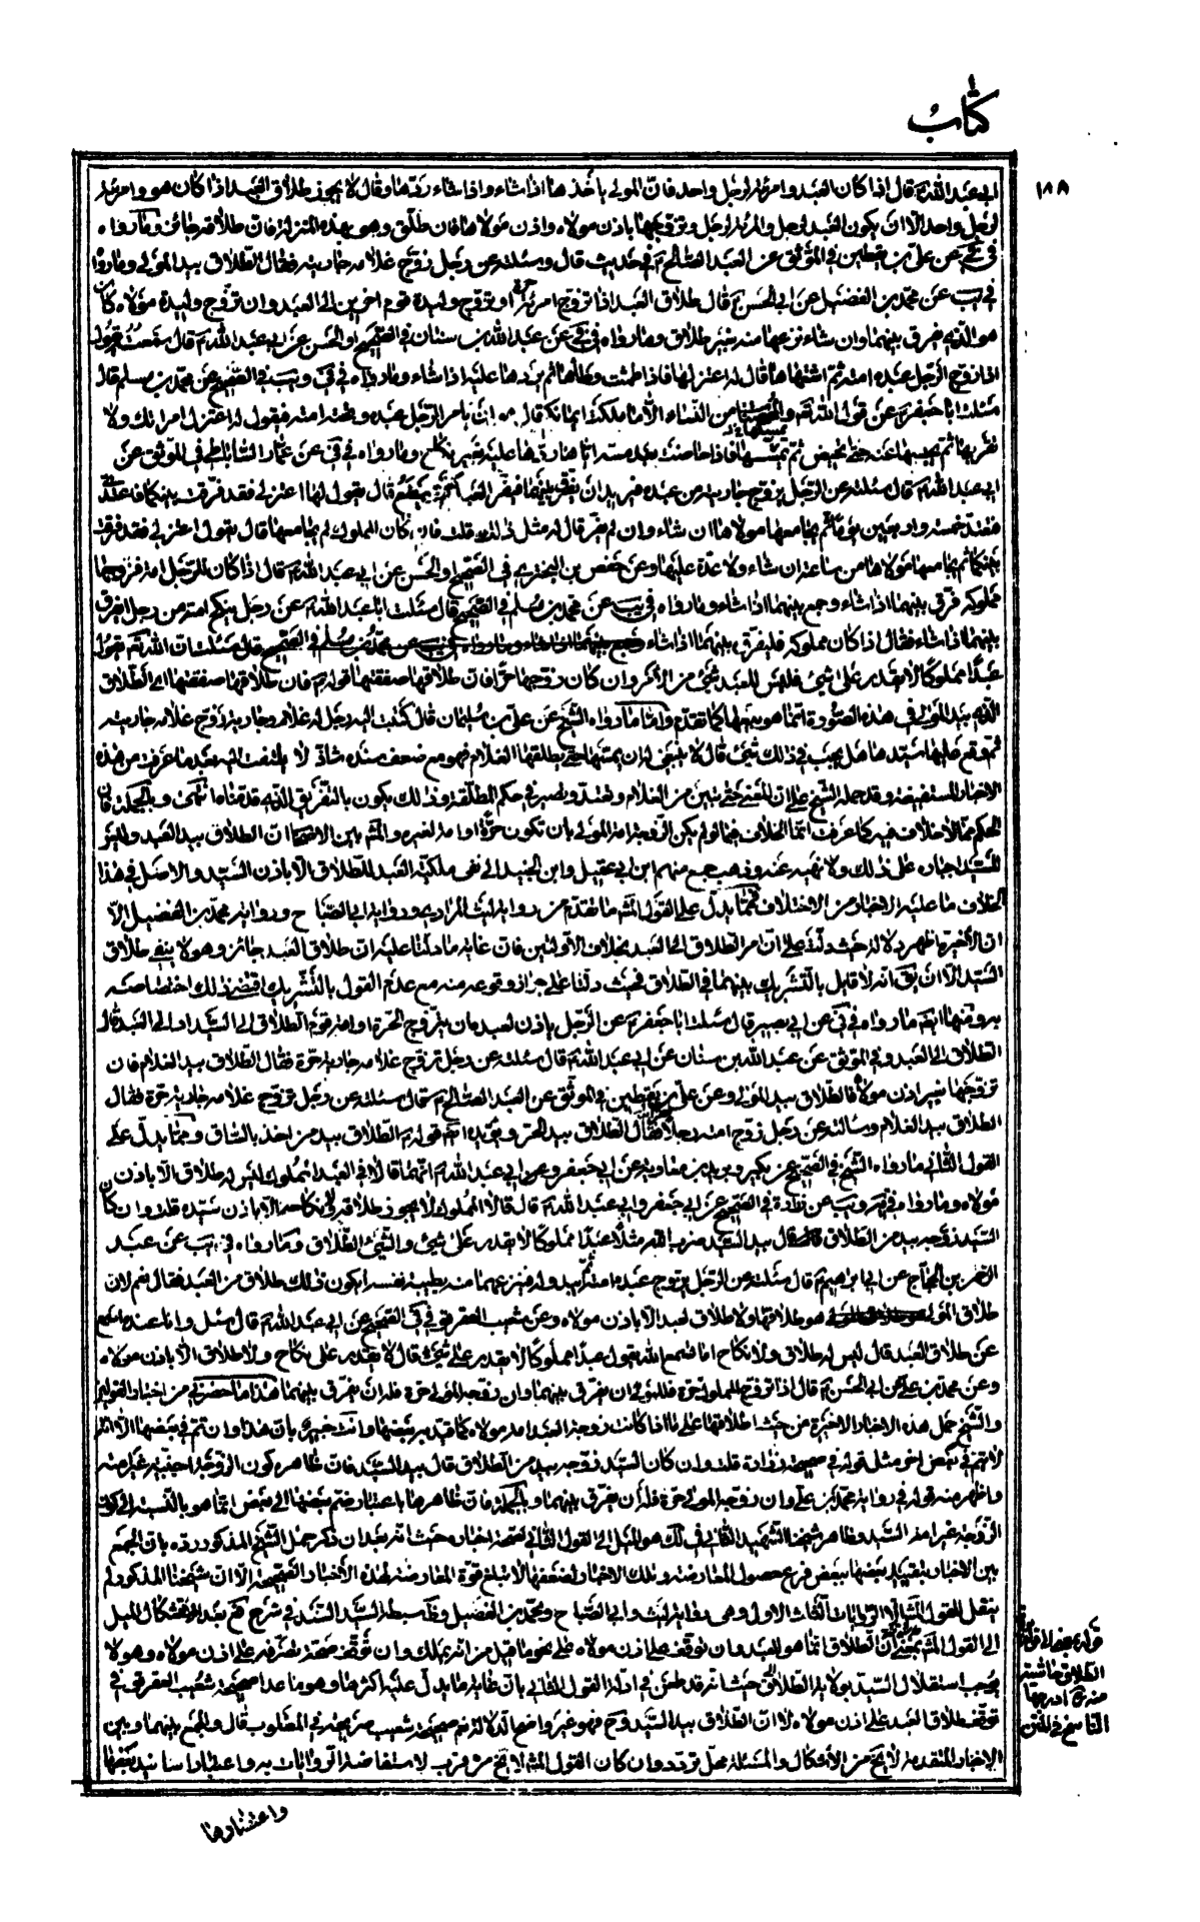 كتاب
١٨٨
ابي عبد الله قال اذا كان العبد وامرأته لرجل واحد فان المولى يأخذها اذا شاء واذا شاء ردها وقال لا يجوز طلاق العبد اذا كان هو وامرأته
لرجل واحد الا ان يكون العبد لرجل والمرأة لرجل وتزوجها باذن مولاه واذن مولاها فان طلق وهو بهذه المنزلة فان طلاقه جائز وما رواه
في عن علي بن يقطين في الموثق عن العبد الصالح في حديث قال وسئلته عن رجل زوج غلامه جاريته فقال الطلاق بيد المولى وما رواه
في يب عن محمد بن الفضيل عن ابي الحسن قال طلاق العبد اذا تزوج امرأة حرة او تزوج وليدة قوم اخرين الى العبد وان تزوج وليدة مولاه كان
هو الذي يفرق بينهما وان شاء نزعها منه بغير طلاق وما رواه في عن عبد الله بن سنان في الصحيح او الحسن عن ابي عبد الله قال سمعته يقول
اذا زوج الرجل عبده امته ثم اشتهاها قال له اعتزلها فاذا طمثت وطأها ثم يردها عليه اذا شاء وما رواه في في ويب في الصحيح عن محمد بن مسلم قال
سئلت ابا جعفر عن قول الله والمحصنات من النساء الا ما ملكت ايمانكم قال هو ان يأمر الرجل عبده وتحته امته فيقول له اعتزل امرأتك ولا
تقربها ثم يحبسها عنه حتى تحيض ثم يمسها فاذا حاضت بعد مسه اياها ردها عليه بغير نكاح وما رواه في في عن عمار الساباطي في الموثق عن
ابي عبد الله قال سئلته عن الرجل يزوج جاريته من عبده فيريد ان يفرق بينهما فيفر العبد كيف يصنع قال يقول لها اعتزلي فقد فرقت بينكما فاعتدي
فتعتد خمسة واربعين يوما ثم يجامعها مولاها ان شاء وان لم يفر قال له مثل ذلك قلت فان كان المملوك لم يجامعها قال يقول اعتزلي فقد فرقت
بينكما ثم يجامعها مولاها من ساعته ان شاء ولا عدة عليها وعن حفص بن البختري في الصحيح او الحسن عن ابي عبد الله قال اذا كان للرجل امة فزوجها
مملوكه فرق بينهما اذا شاء وجمع بينهما اذا شاء وما رواه في يب عن محمد بن مسلم في الصحيح قال سئلت ابا عبد الله عن رجل ينكح امته من رجل ايفرق
بينهما اذا شاء فقال اذا كان مملوكه فليفرق بينهما اذا شاء ان الله يقول
عبدا مملوكا لا يقدر على شئ فليس للعبد شئ من الامر وان كان زوجها حرا فان طلاقها صفقتها قوله فان طلاقها صفقتها اي الطلاق
الذي بيد المولى في هذه الصورة انما هو بيعها كما تقدم واما ما رواه الشيخ عن علي بن سليمان قال كتبت اليه رجل له غلام وجارية زوج غلامه جاريته
ثم وقع عليها سيدها هل يجب في ذلك شئ قال لا ينبغي له ان يمسها حتى يطلقها الغلام فهو مع ضعف سنده شاذ لا يلتفت اليه بعد ما عرفت من هذه
الاخبار المستفيضة وقد حمله الشيخ على ان المعنى حتى تبين من الغلام وتعتد وتصير في حكم المطلقة وذلك يكون بالتفريق الذي قدمناه انتهى وبالجملة فان
الحكم مما لا خلاف فيه كما عرفت انما الخلاف فيما لو لم يكن الزوجة امة المولى بان تكون حرة او امة لغيره والمشهور بين الاصحاب ان الطلاق بيد العبد وليس
للسيد اجباره على ذلك ولا نهيه عنه وذهب جمع منهم ابن ابي عقيل وابن الجنيد الى نفي ملكية العبد للطلاق الا باذن السيد والاصل في هذا
الخلاف ما عليه الاخبار من الاختلاف فمما يدل على القول المشهور ما تقدم من رواية ليث المرادي ورواية ابي الصباح ورواية محمد بن الفضيل الا
ان الاخيرة اظهر دلالة حيث دلت على ان امر الطلاق الى العبد بخلاف الاولتين فان غاية ما دلتا عليه ان طلاق العبد جائز وهو لا ينفي طلاق
السيد الا ان يق انه لا قايل بالتشريك بينهما في الطلاق فحيث دلتا على جوازه وقوعه منه مع عدم القول بالتشريك اقتضى ذلك اختصاصه
به ومنها ايضا ما رواه في في عن ابي بصير قال سئلت ابا جعفر عن الرجل ياذن لعبده ان يتزوج الحرة او امة قوم الطلاق الى السيد او الى العبد قال
الطلاق الى العبد وفي الموثق عن عبد الله بن سنان عن ابي عبد الله قال سئلته عن رجل تزوج غلامه جارية حرة فقال الطلاق بيد الغلام فان
تزوجها بغير اذن مولاه فالطلاق بيد المولى وعن علي بن يقطين في الموثق عن العبد الصالح قال سئلته عن رجل تزوج غلامه جارية حرة فقال
الطلاق بيد الغلام وسالته عن رجل زوج امته رجلا حرا فقال الطلاق بيد الحر ويؤيده ايضا قوله الطلاق بيد من اخذ بالساق ومما يدل على
القول الثاني ما رواه الشيخ في الصحيح عن بكير وبريد بن معاوية عن ابي جعفر وعن ابي عبد الله انهما قالا في العبد المملوك ليس له طلاق الا باذن
مولاه وما رواه في يه ويب عن زرارة في الصحيح عن ابي جعفر وابي عبد الله قال قالا المملوك لا يجوز طلاقه ولا نكاحه الا باذن سيده قلت وان كان
السيد زوجه بيد من الطلاق قال بيد السيد ضرب الله مثلا عبدا مملوكا لا يقدر على شئ والشئ الطلاق وما رواه في يب عن عبد
الرحمن بن الحجاج عن ابي ابراهيم قال سئلته عن الرجل يزوج عبده امته ثم يبدو له فينزعها منه بطيبة نفسه ايكون ذلك طلاق من العبد فقال نعم لان
طلاق المولى هو طلاقها ولا طلاق لعبد الا باذن مولاه وعن شعيب العقرقوفي في الصحيح عن ابي عبد الله قال سئل وانا عنده اسمع
عن طلاق العبد قال ليس له طلاق ولا نكاح اما تسمع الله يقول عبدا مملوكا لا يقدر على شئ قال لا يقدر على نكاح ولا طلاق الا باذن مولاه
وعن محمد بن علي عن ابي الحسن قال اذا تزوج المملوك حرة فللمولى ان يفرق بينهما وان زوجه المولى حرة فله ان يفرق بينهما هذا ما حضرني من اخبار القولين
والشيخ حمل هذه الاخبار الاخيرة من حيث اطلاقها على ما اذا كانت زوجة العبد امة مولاه كما قيد به بعضها وانت خبير بان هذا وان تم في بعضها الا انه
لا يتم في بعض اخر مثل قوله في صحيحة زرارة قلت وان كان السيد زوجه بيد من الطلاق قال بيد السيد فان ظاهره كون الزوجة اجنبية غير امته
واظهر منه قوله في رواية محمد بن علي وان زوجه المولى حرة فله ان يفرق بينهما وبالجملة فان ظاهرها باعتبار ضم بعضها الى بعض انما هو بالنسبة الى كون
الزوجة غير امة السيد وظاهر شيخنا الشهيد الثاني في لك هو الميل الى القول الثاني لصحة اخباره حيث انه بعد ان ذكر حمل الشيخ المذكور رده بان الجمع
بين الاخبار بتقييد بعضها ببعض فرع حصول المعارضة وتلك الاخبار لضعفها لا تبلغ قوة المعارضة لهذه الاخبار الصحيحة الا ان شيخنا المذكور لم
ينقل للقول المشهور الا الروايات الثلث الاول وهي رواية ليث وابي الصباح ومحمد بن الفضيل وظاهر سبطه السيد السند في شرح فع بعد الاستشكال الميل
الى القول المشهور بمعنى ان الطلاق انما هو للعبد وان توقف على اذن مولاه على نحو ما قيل من انه يملك وان توقف صحة تصرفه على اذن مولاه وهو لا
يوجب استقلال السيد بولاية الطلاق حيث انه قد طعن في ادلة القول الثاني بان غاية ما يدل عليه اكثرها وهو ما عدا صحيحة شعيب العقرقوفي
توقف طلاق العبد على اذن مولاه لا ان الطلاق بيد السيد وح فهو غير واضح الدلالة نعم صحيحة شعيب صريحة في المطلوب قال والجمع بينهما وبين
الاخبار المتقدمة لا يخ من الاشكال والمسئلة محل تردد وان كان القول المشهور لا يخ من قرب لاستفاضة الروايات به واعتبار اسانيد بعضها
الطلاق حاشية
منه ادرجها
الناسخ في المتن
واعتضادها